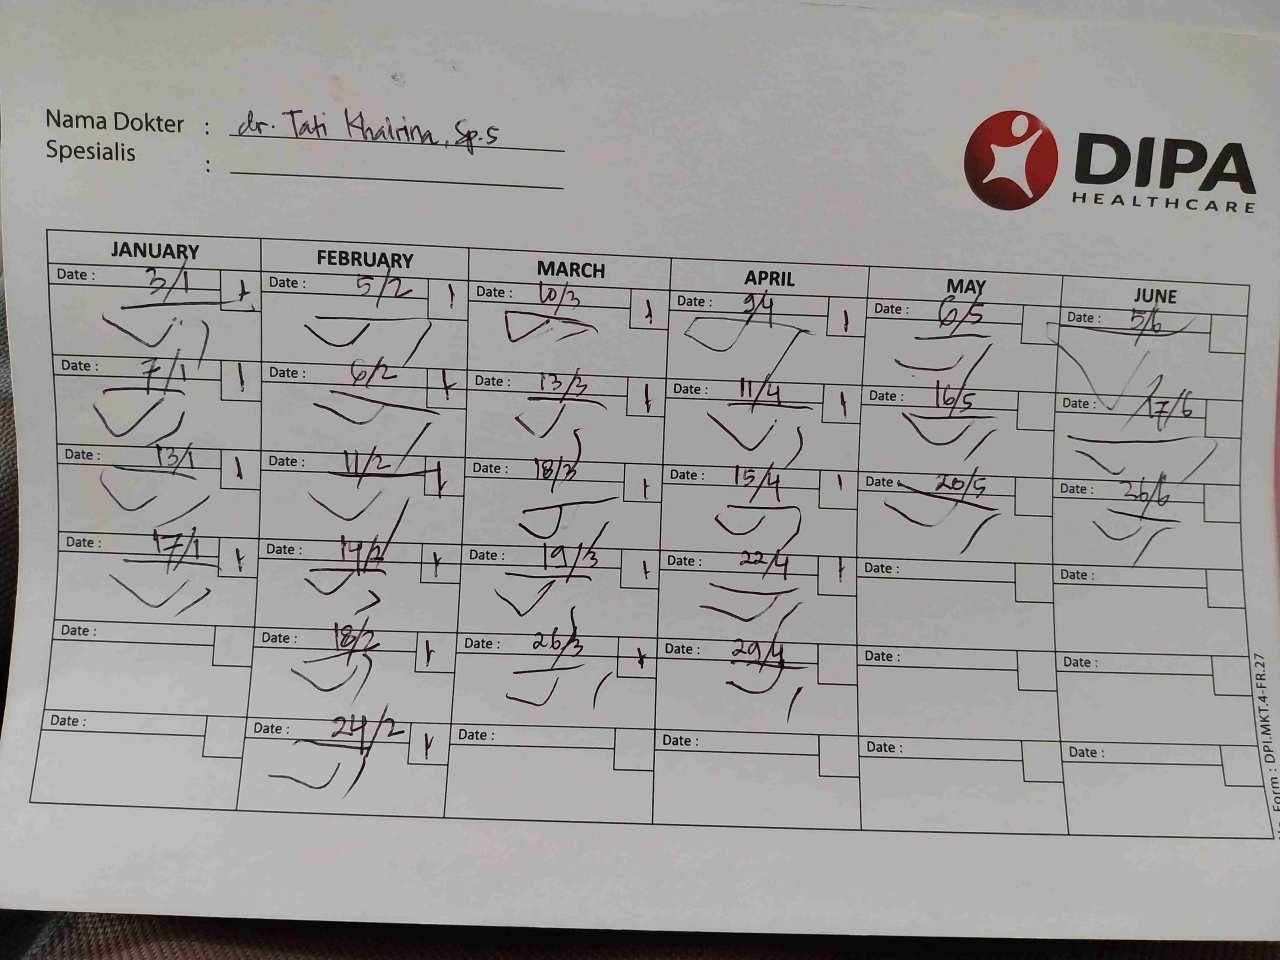 Nama Dokter : dr. Tati Khairina, Sp.S
Spesialis :
DIPA
HEALTHCARE
JANUARY FEBRUARY MARCH APRIL MAY JUNE
Date : 3/1 Date : 5/2 Date : 10/3 Date : 9/4 Date : 6/5 Date : 5/6
Date : 7/1 Date : 6/2 Date : 13/3 Date : 11/4 Date : 16/5 Date : 17/6
Date : 13/1 Date : 11/2 Date : 18/3 Date : 15/4 Date : 20/5 Date : 26/6
Date : 17/1 Date : 14/2 Date : 19/3 Date : 22/4 Date : Date :
Date : Date : 18/2 Date : 26/3 Date : 29/4 Date : Date :
Date : Date : 24/2 Date : Date : Date : Date :
Form : DPI.MKT.4-FR.27